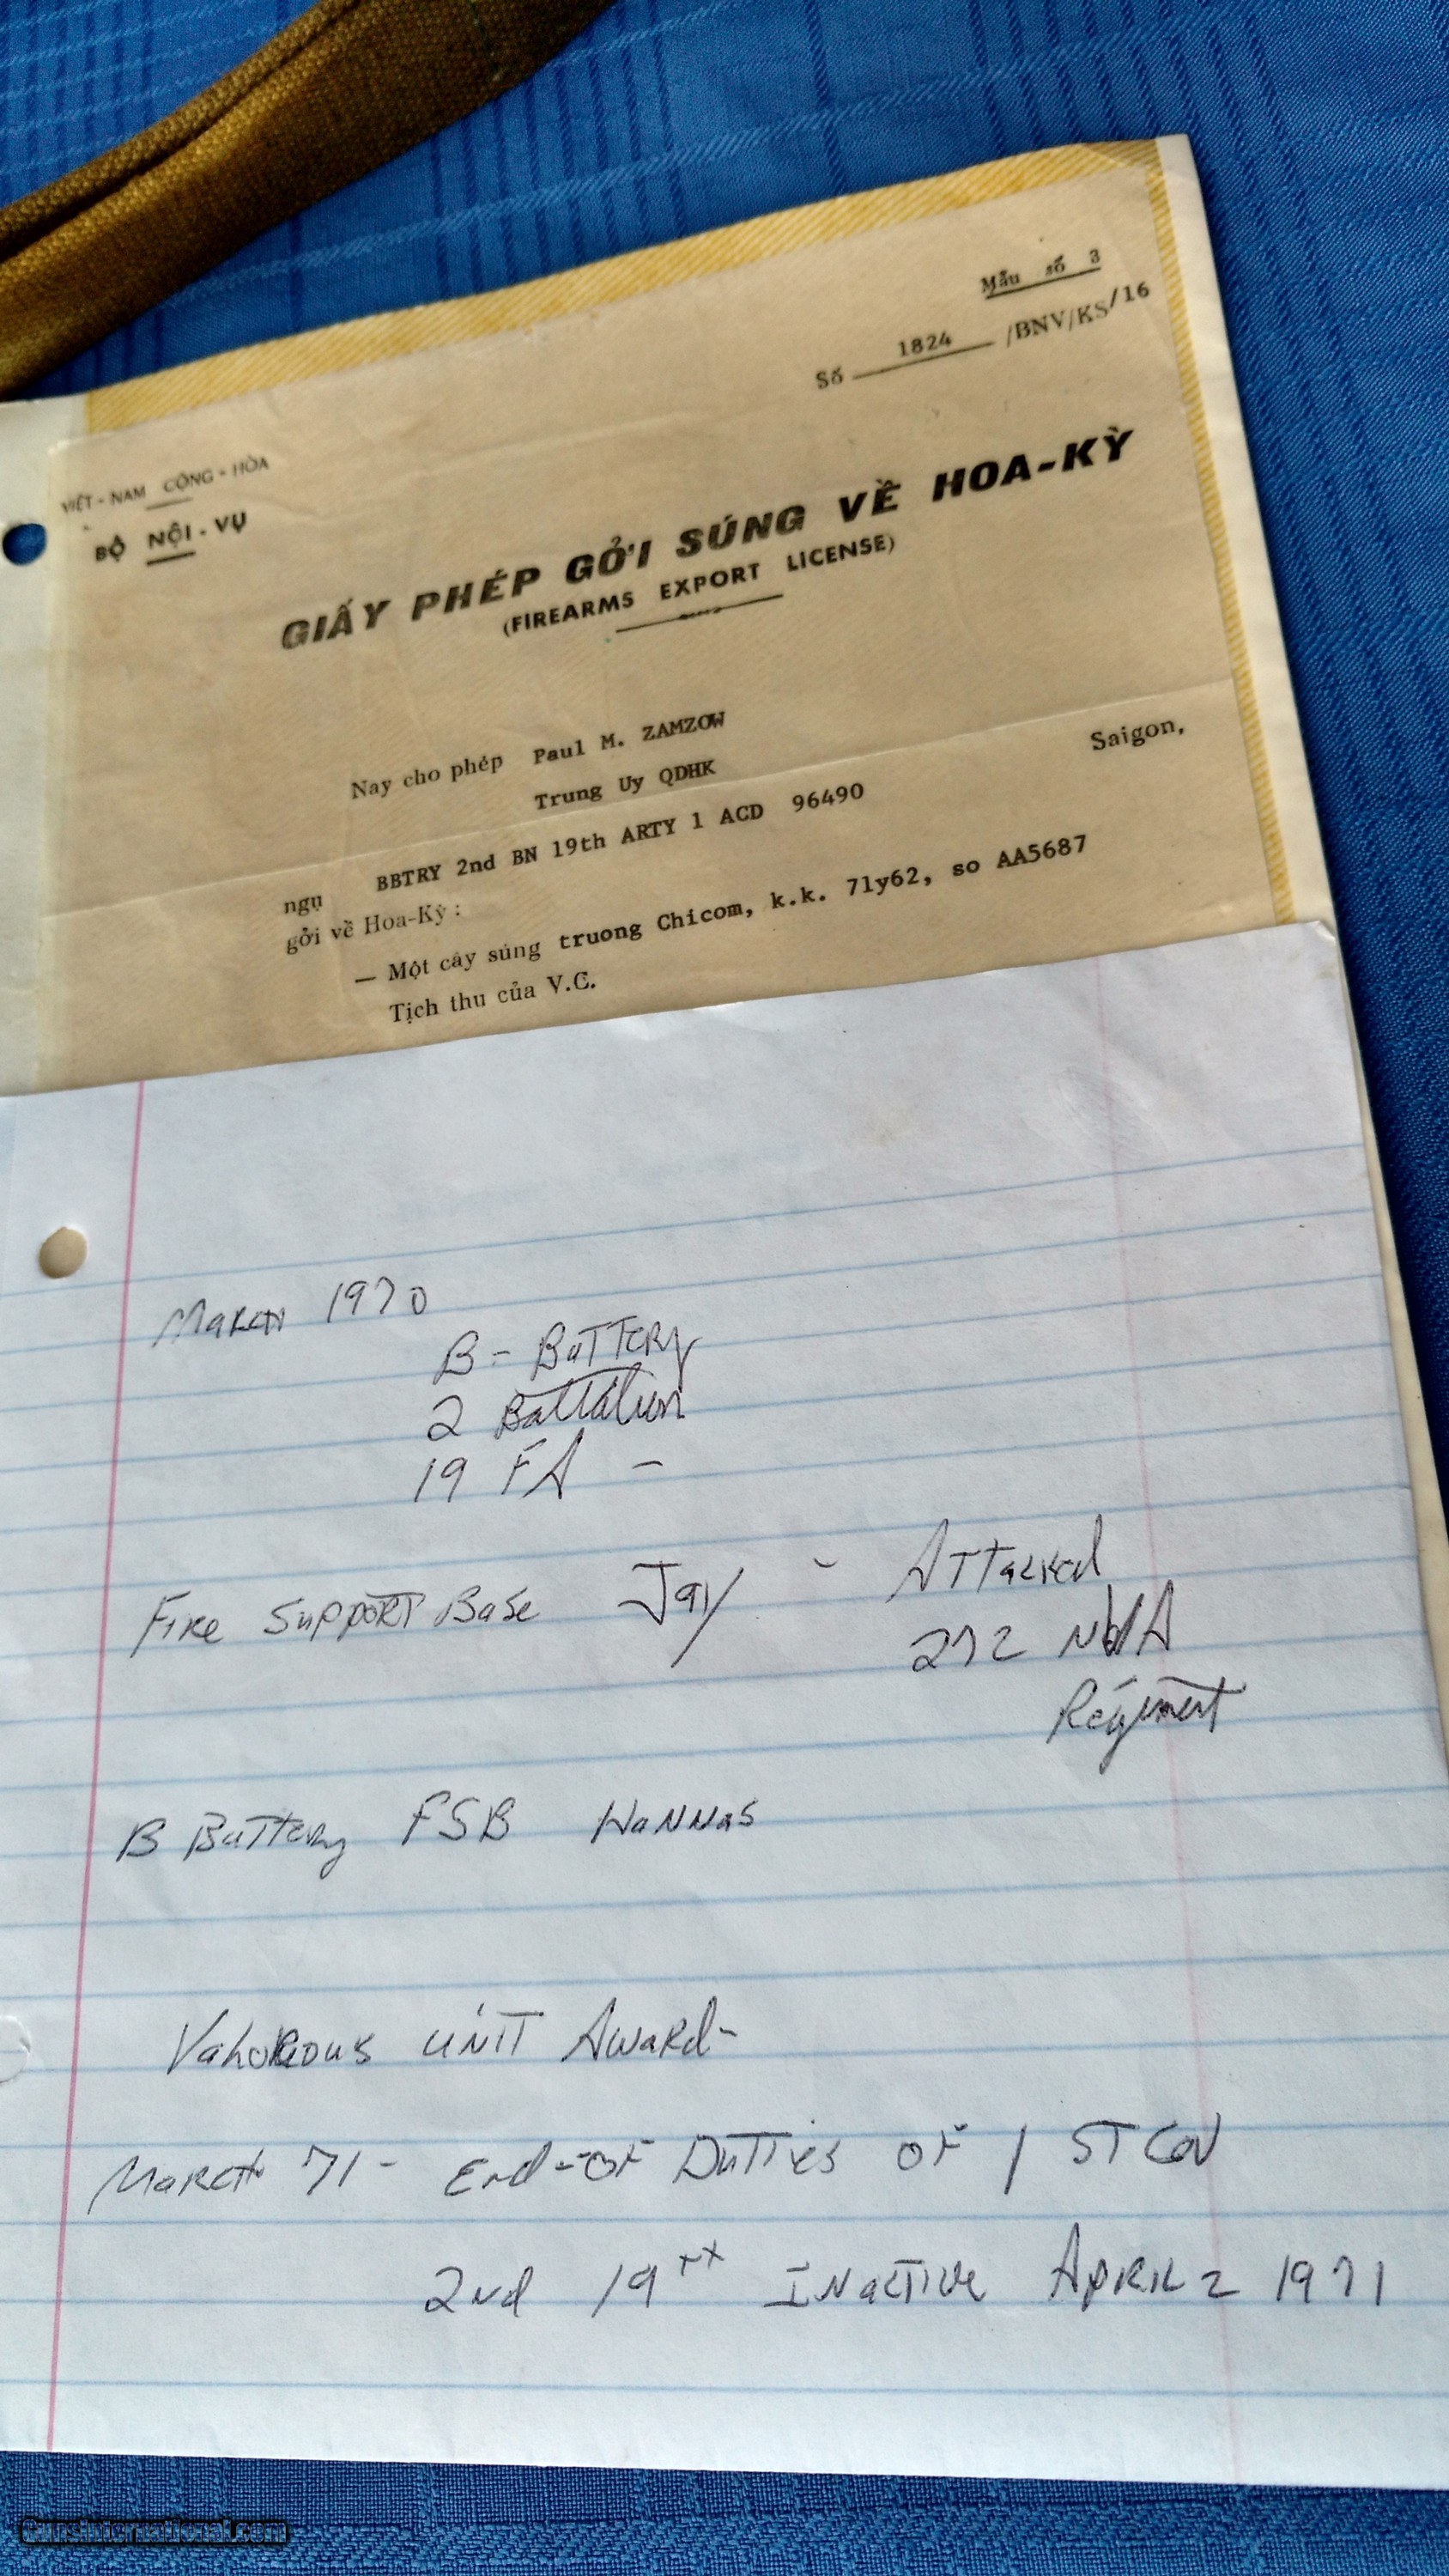 Mẫu số 3
Số 1824 /BNV/KS/16
VIỆT - NAM CỘNG - HÒA
BỘ NỘI - VỤ
GIẤY PHÉP GỞI SÚNG VỀ HOA-KỲ
(FIREARMS EXPORT LICENSE)
Saigon,
Nay cho phép Paul M. ZAMZOW
Trung Uy QDHK
ngụ BBTRY 2nd BN 19th ARTY 1 ACD 96490
gởi về Hoa-Kỳ :
— Một cây súng truong Chicom, k.k. 71y62, so AA5687
Tịch thu của V.C.
March 1970
B - Battery
2 Battalion
19 FA -
Fire Support Base Jay - Attacked
272 NVA
Regiment
B Battery FSB Hannas
Valorous Unit Award -
March 71 - End-of Duties of 1 ST Cav
2nd 19th Inactive April 2 1971
GunsInternational.com